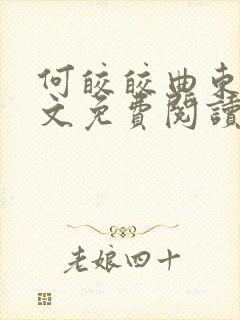 何皎皎曲東
文免費閱讀
老娘四十